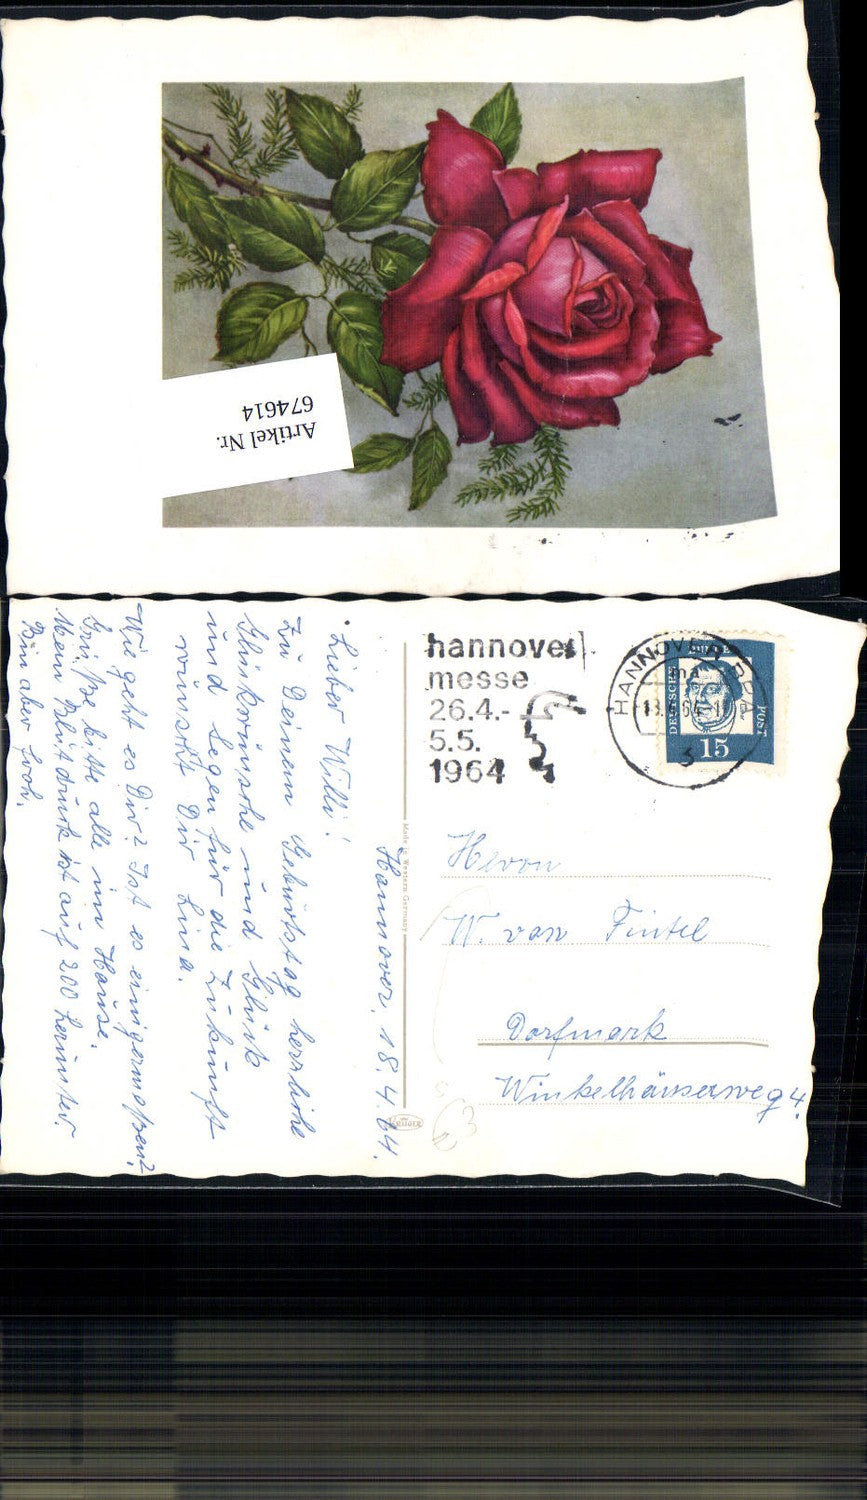 Artikel Nr.
674614
hannover
messe
26.4.-
5.5.
1964
HANNOVER
3
DEUTSCHE
BUNDES
POST
15
Hannover, 18.4.64.
Lieber Willi!
Zu Deinem Geburtstag herzliche
Glückwünsche und Glück
und Segen für die Zukunft
wünscht Dir Lina.
Wie geht es Dir? Ist es einigermaßen?
Grüße bitte alle im Hause.
Mein Blutdruck ist auf 200 herunter.
Bin aber froh.
Made in Western Germany
KRÜGER
Herrn
W. von Fintel
Dorfmark
Winkelhäuserweg 4.